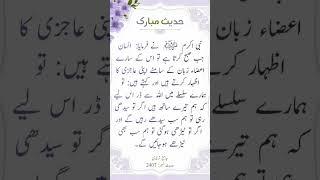 حدیث مبارک
نبی اکرم ﷺ نے فرمایا: انسان
جب صبح کرتا ہے تو اس کے سارے
اعضاء زبان کے سامنے اپنی عاجزی کا
اظہار کرتے ہیں اور کہتے ہیں: تو
ہمارے سلسلے میں اللہ سے ڈر اس لیے
کہ ہم تیرے ساتھ ہیں اگر تو سیدھی
رہی تو ہم سب سیدھے رہیں گے اور
اگر تو ٹیڑھی ہو گئی تو ہم سب بھی
ٹیڑھے ہو جائیں گے۔
2407